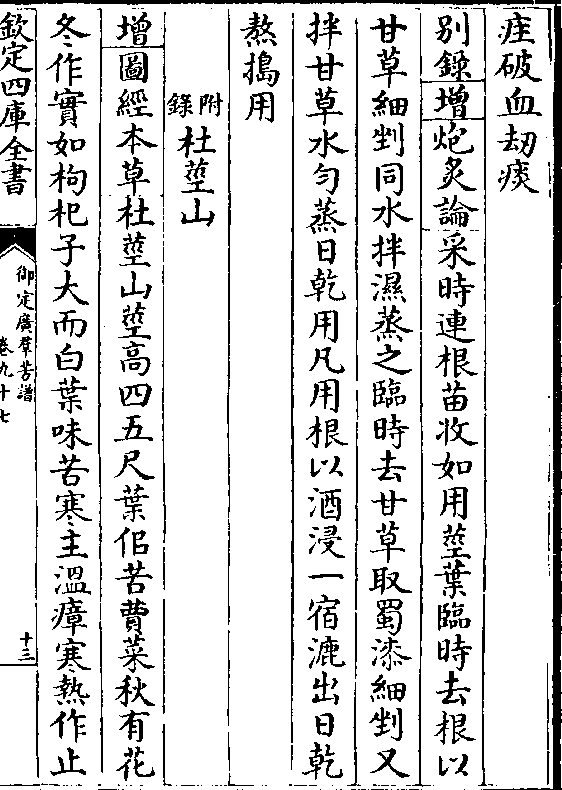 疰破血刼痰
别錄增炮炙論采時連根苗收如用莖葉臨時去根以
甘草細剉同水拌濕蒸之臨時去甘草取蜀漆細剉又
拌甘草水勻蒸日乾用凡用根以酒浸一宿漉出日乾
熬搗用
附錄杜莖山
增圖經本草杜莖山莖高四五尺葉佀苦蕒菜秋有花
冬作實如枸杞子大而白葉味苦寒主溫瘴寒熱作止
欽定四庫全書
御定廣羣芳譜
卷九十七
十三